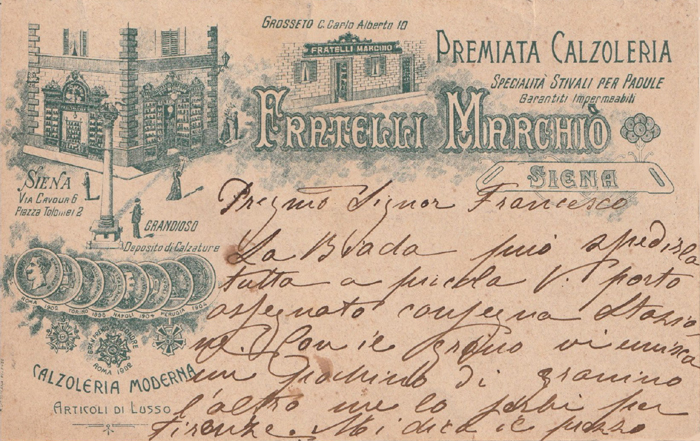 GROSSETO C. Carlo Alberto 10
FRATELLI MARCHIO
PREMIATA CALZOLERIA
SPECIALITÀ STIVALI PER PADULE
Garantiti Impermeabili
FRATELLI MARCHIÒ
SIENA
SIENA
VIA CAVOUR 6
PIAZZA TOLOMEI 2
GRANDIOSO
Deposito di Calzature
ROMA TORINO NAPOLI 1904 PERUGIA
ROMA
CALZOLERIA MODERNA
ARTICOLI DI LUSSO
Pregmo Signor Francesco
La Biada può spedirla
tutta a piccola V. porto
assegnato consegna Stazio
ne. Con il vi
un di
l'altro me lo serbi per
Firenze. Mi dica il prezzo